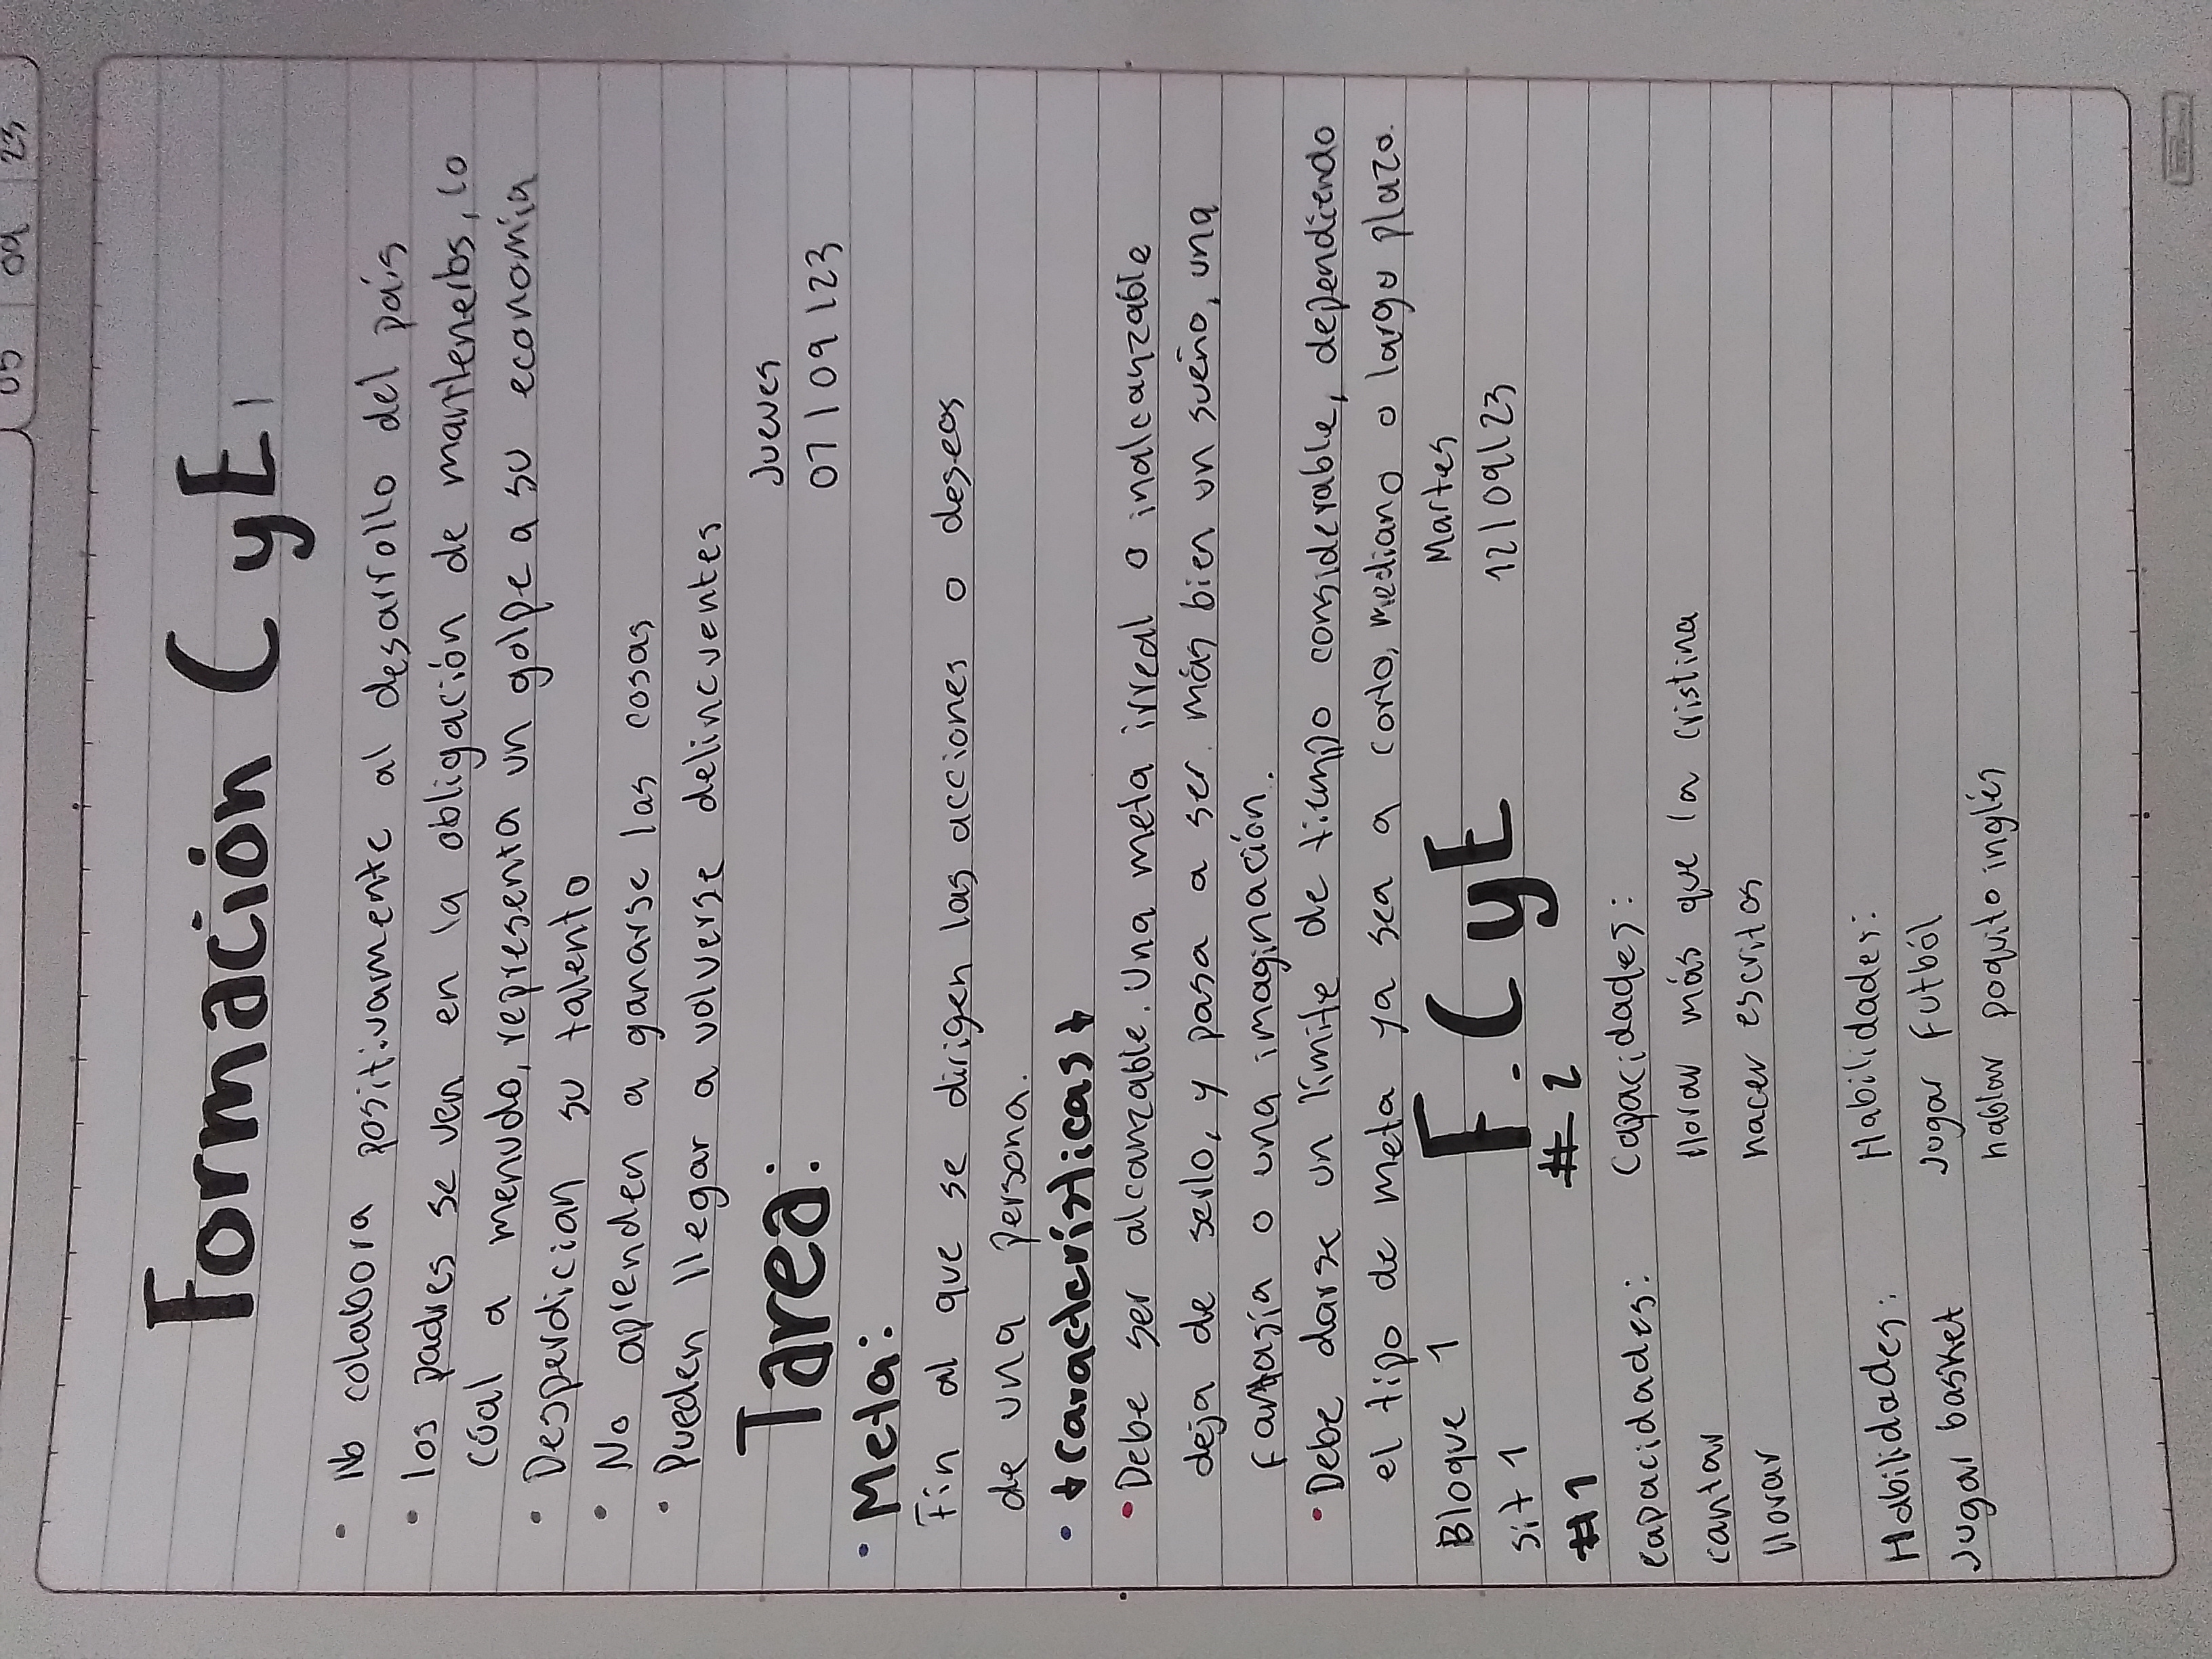 05 09 23
Formación C y E
• No colabora positivamente al desarrollo del país
• los padres se ven en la obligación de mantenerlos, lo
cúal a menudo, representa un golpe a su economía
• Desperdician su talento
• No aprenden a ganarse las cosas
• Pueden llegar a volverse delincuentes
Jueves
Tarea: 07/09/23
• Meta:
Fin al que se dirigen las acciones o deseos
de una persona.
• ↓Características↓
• Debe ser alcanzable. Una meta irreal o inalcanzable
deja de serlo, y pasa a ser más bien un sueño, una
fantasía o una imaginación.
• Debe darse un límite de tiempo considerable, dependiendo
el tipo de meta ya sea a corto, mediano o largo plazo.
Bloque 1 F. C y E Martes
sit 1 12/09/23
#1 #2
capacidades: Capacidades:
cantar llorar más que la cristina
llorar hacer escritos
Habilidades: Habilidades:
Jugar basket Jugar futból
hablar poquito inglés